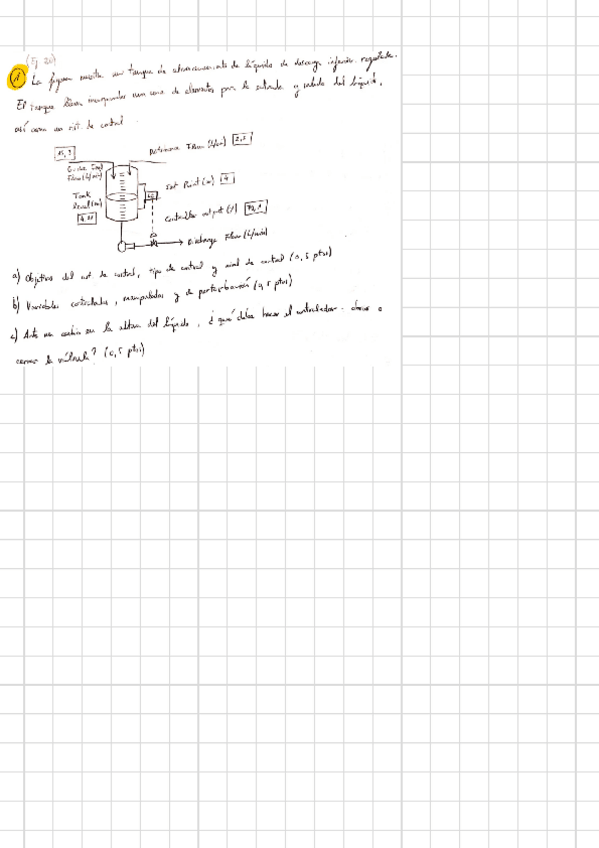 (Ej 20)
1 La figura muestra un tanque de almacenamiento de líquido de descarga inferior regulada.
El tanque lleva una de por la entrada y salida del líquido,
así como un sist. de control.
Disturbance Flow (L/min) 2,1
Flow (L/min)
Set Point (m) 4
Tank
Level (m)
Controller output (%)
Discharge Flow (L/min)
a) Objetivo del sist. de control, tipo de control y nivel de control (0,5 ptos)
b) Variables controladas, manipuladas y de perturbación (0,5 ptos)
c) Ante un cambio en la altura del líquido, ¿qué debe hacer el controlador: abrir o
cerrar la válvula? (0,5 ptos)